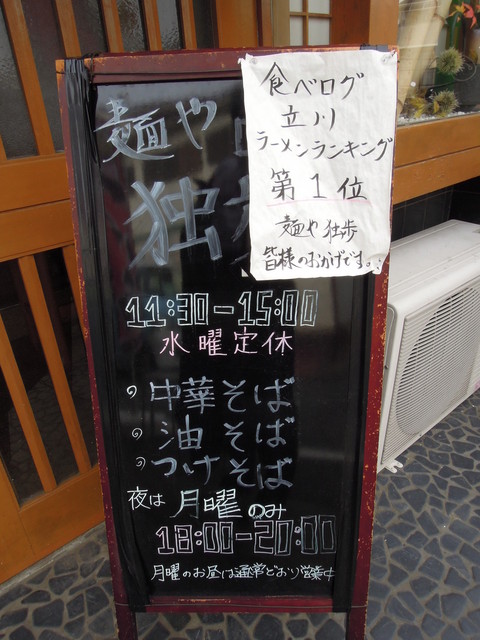 麺や
独
食べログ
立川
ラーメンランキング
第1位
麺や 独歩
皆様のおかげです。
11:30-15:00
水曜定休
中華そば
油そば
つけそば
夜は 月曜のみ
18:00-20:00
月曜のお昼は通常どおり営業中